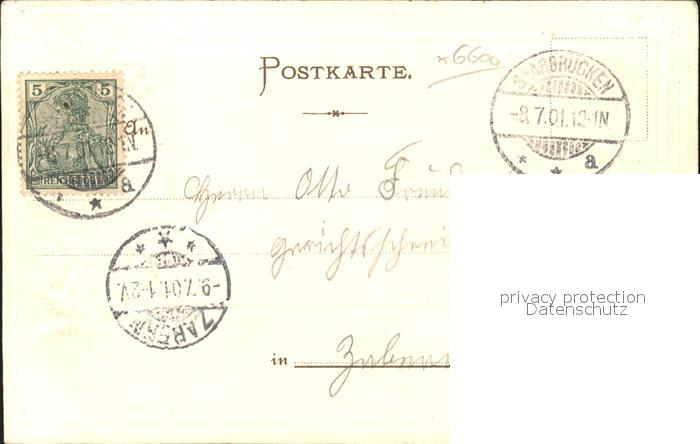 *6600
POSTKARTE.
5 5
REICHSPOST
SAARBRÜCKEN
-8.7.01.12-1N.
* * a
a
An
Herrn Otto
-9.7.01.1-2V.
ZABERN
privacy protection
Datenschutz
in Zabern